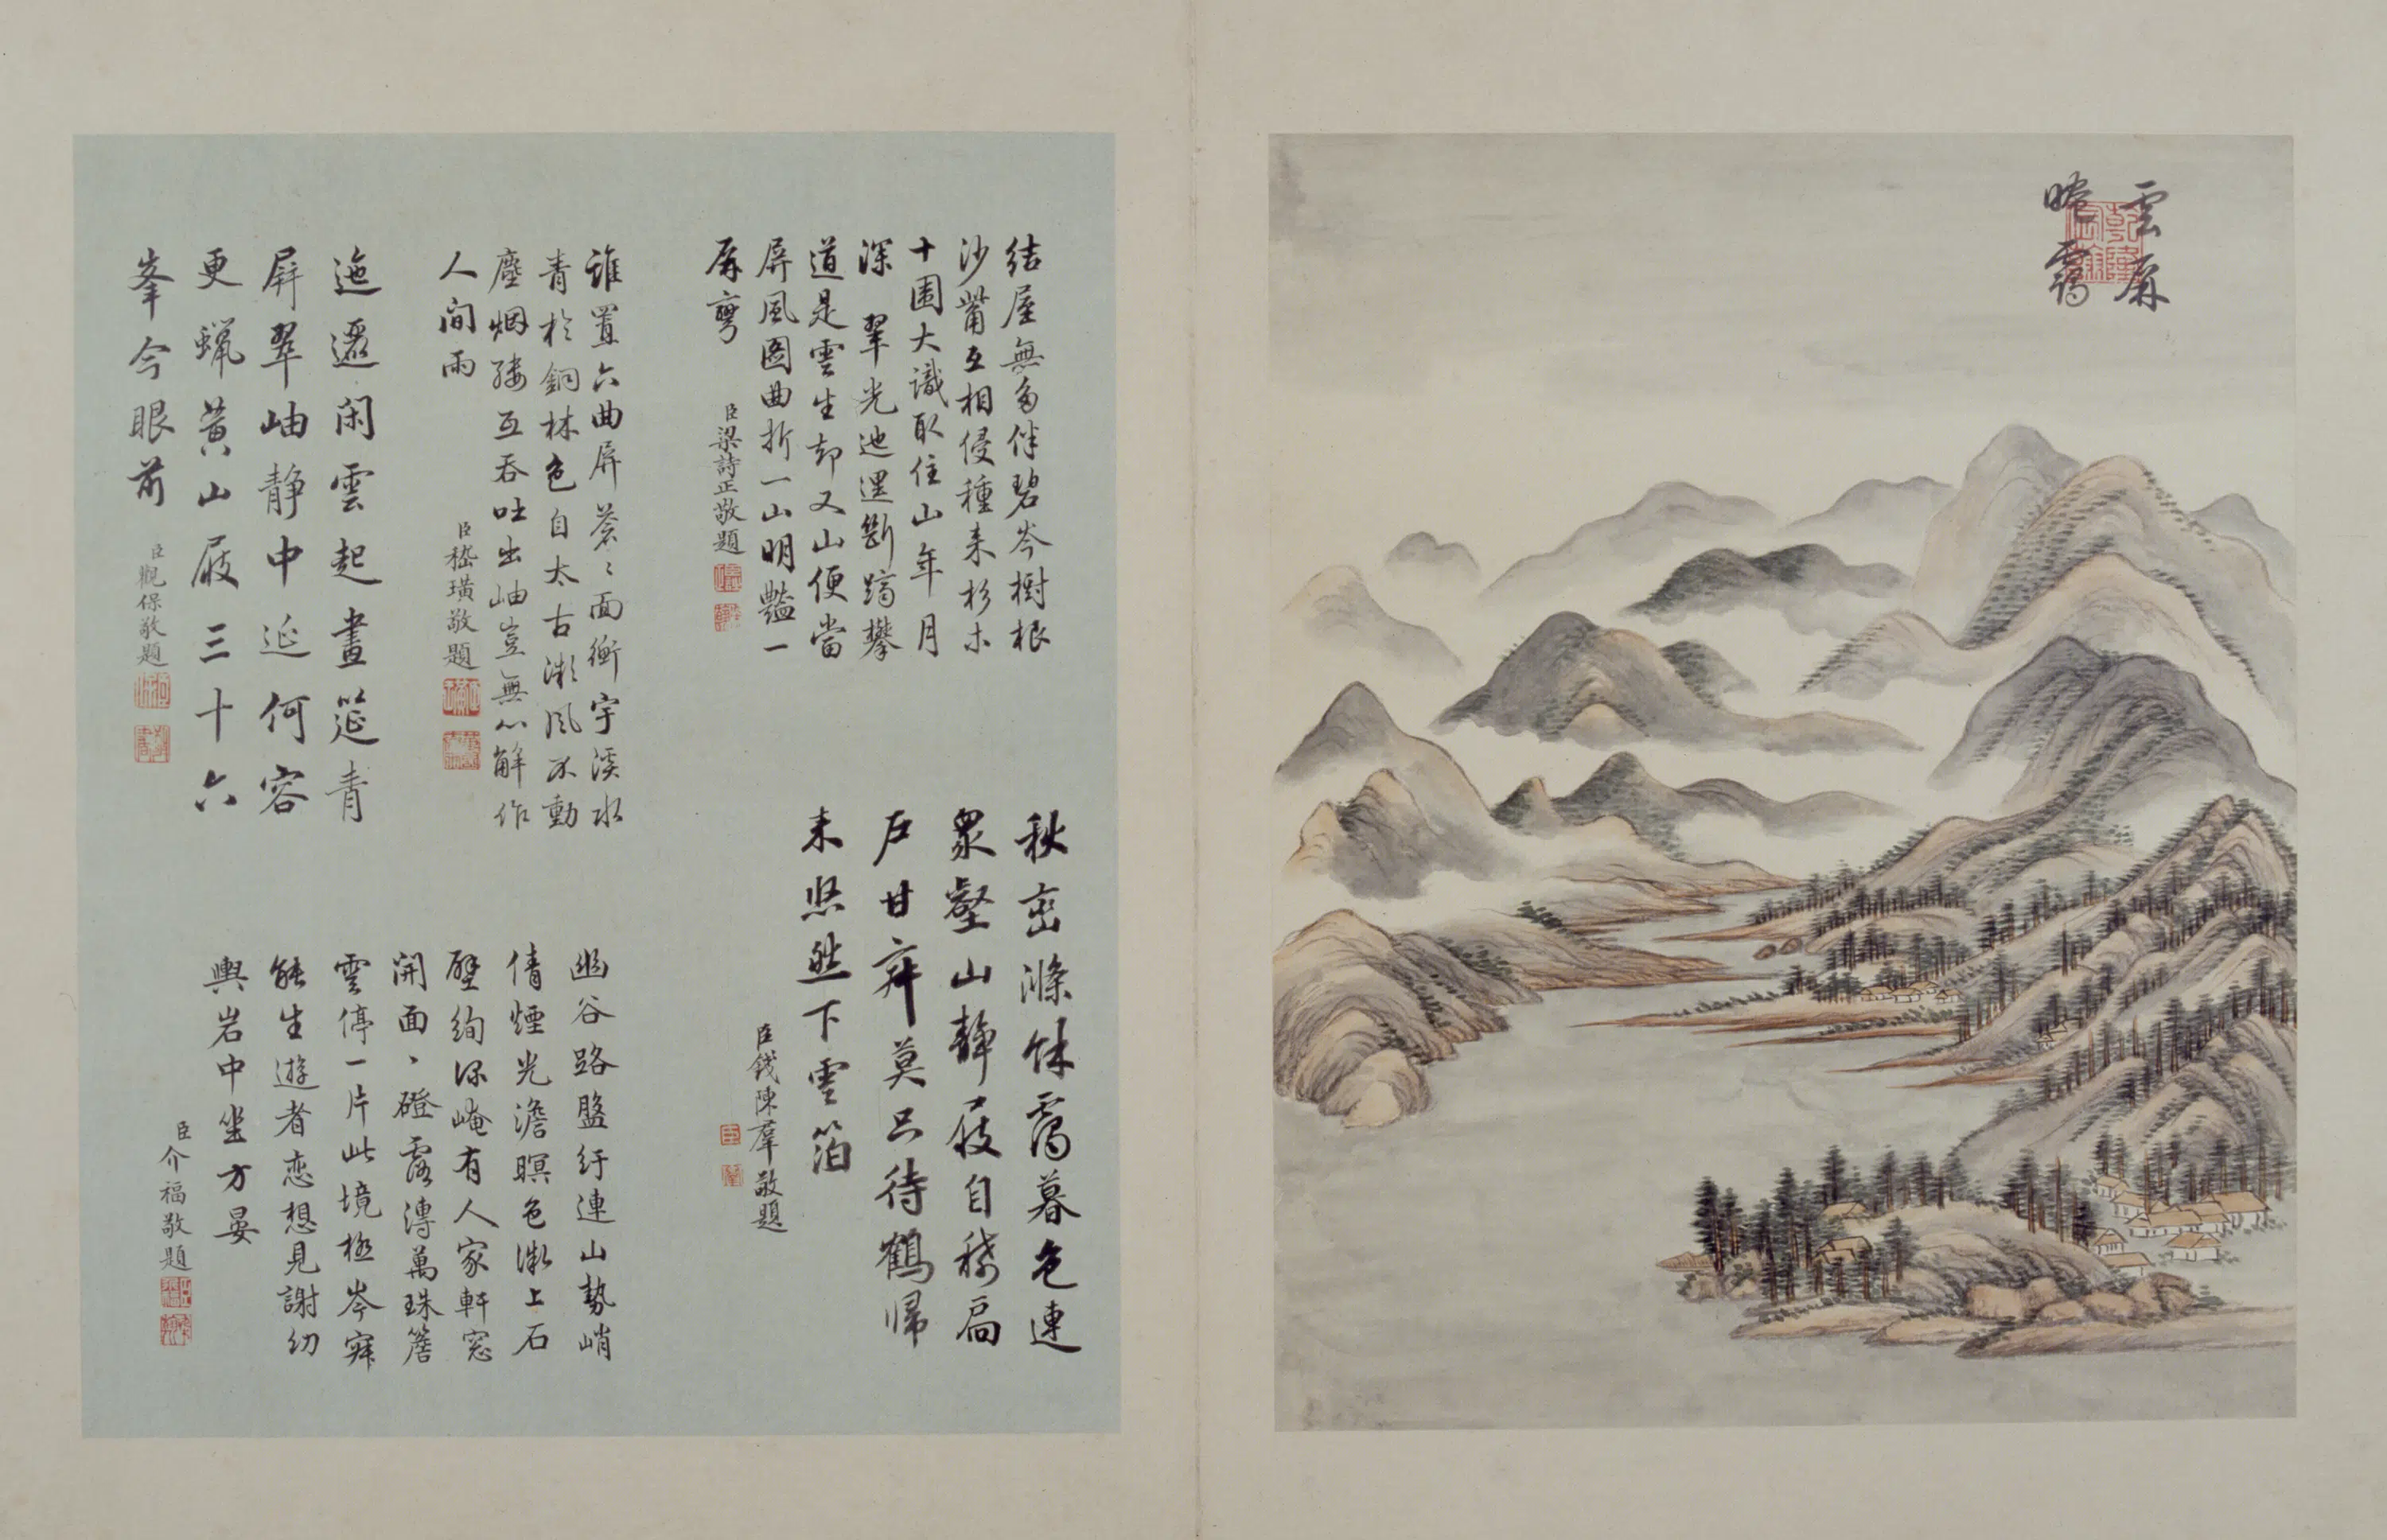 雲屏
晚靄
結屋無多伴碧岑樹根
沙觜互相侵種来杉木
十圍大識取住山年月
深 翠光迆邐斷躋攀
道是雲生却又山便當
屏風圖曲折一山明豔一
屏彎
臣梁詩正敬題
秋巒滌餘靄暮色連
眾壑山靜屐自稀扃
戶甘寂莫只待鶴帰
来悠然下雲箔
臣錢陳羣敬題
誰置六曲屏蒼〻面衡宇溪水
青於銅林色自太古漱風不動
塵烟縷互吞吐出岫豈無心解作
人間雨
臣嵇璜敬題
幽谷路盤紆連山勢峭
倩煙光澹暝色漱上石
壁絢深崦有人家軒窓
開面〻磴露漙萬珠簷
雲停一片此境極岑寂
能生遊者恋想見謝幼
輿岩中坐方晏
臣介福敬題
迤邐闲雲起畫筵青
屏翠岫静中延何容
更蠟黄山屐三十六
峯今眼前
臣觀保敬題